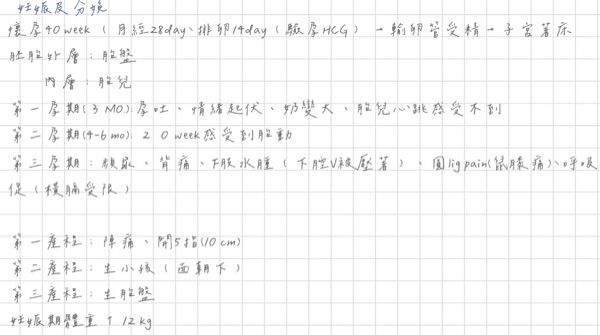 妊娠及分娩
懷孕40 week (月經28day、排卵14day (驗孕HCG) → 輸卵管受精 → 子宮著床
胚胎外層：胎盤
內層：胎兒
第一孕期(3 MO): 孕吐、情緒起伏、奶變大、胎兒心跳感受不到
第二孕期(4-6 mo): 20 week感受到胎動
第三孕期：頻尿、背痛、下肢水腫 (下腔V被壓著)、圓lig pain(鼠膝痛)、呼吸
促 (橫膈受限)
第一產程：陣痛、開5指(10 cm)
第二產程：生小孩 (面朝下)
第三產程：生胎盤
妊娠期體重↑12kg